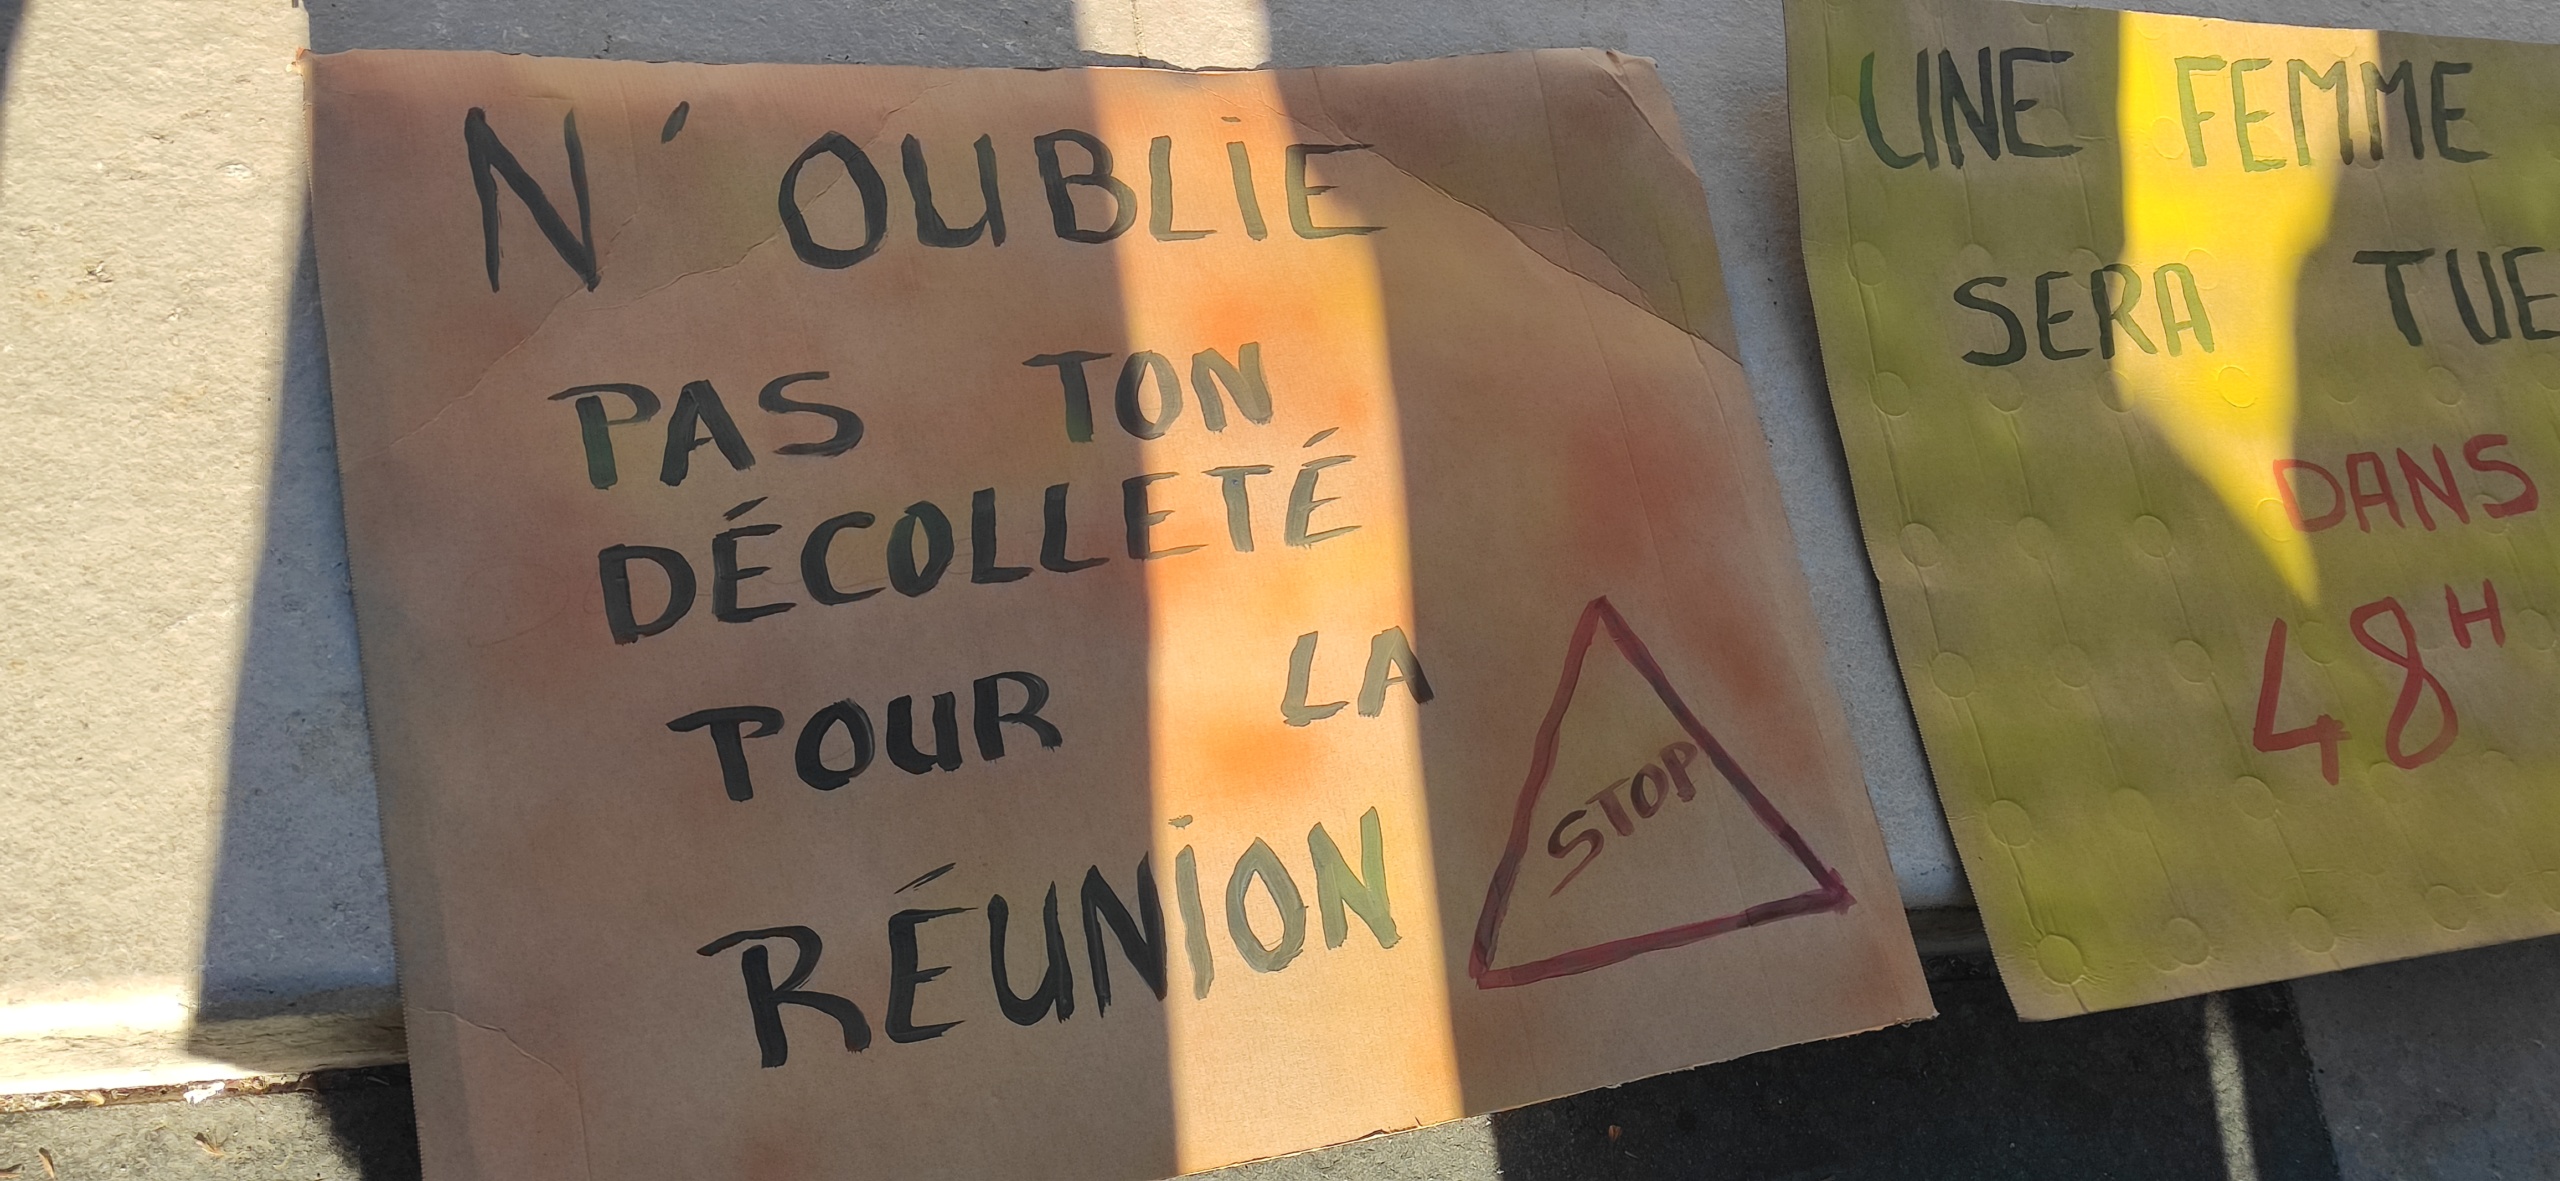 N'OUBLiE
PAS TON
DÉCOLLETÉ
POUR LA
RÉUNiON
STOP
UNE FEMME
SERA TUE
DANS
48H